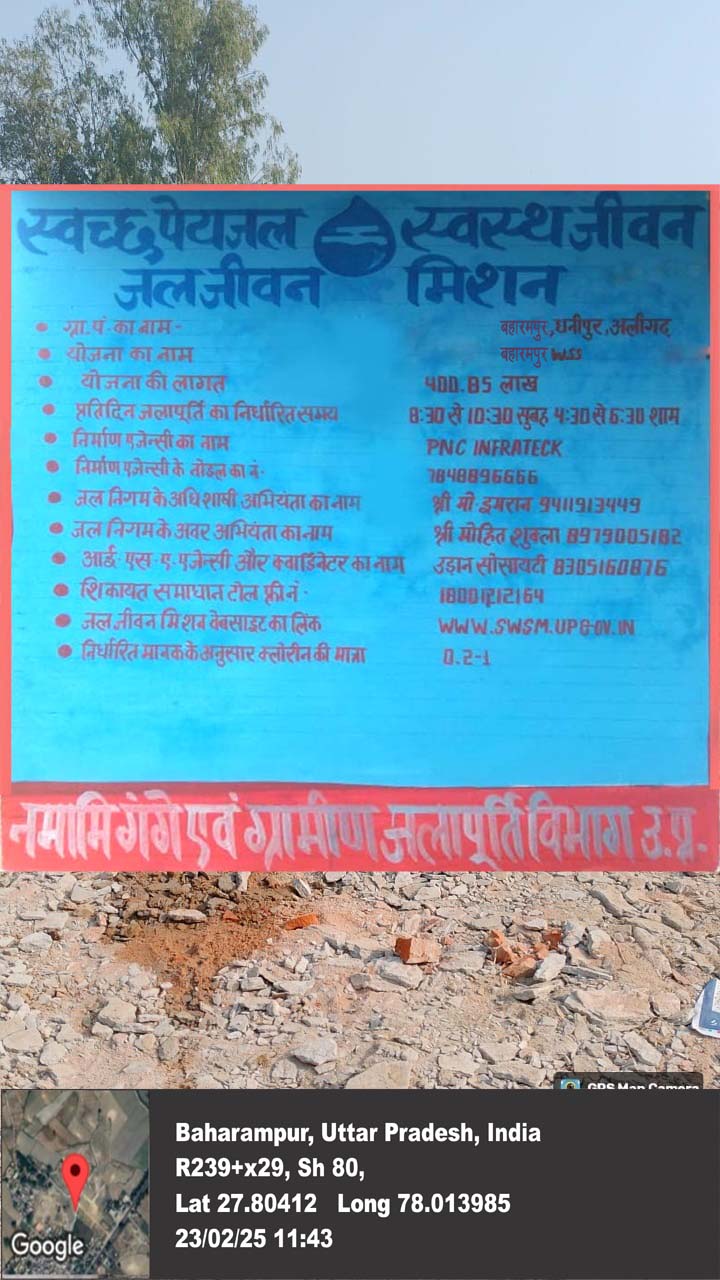 स्वच्छ पेयजल स्वस्थ जीवन
जल जीवन मिशन
ग्रा.पं. का नाम - बहारमपुर, धनीपुर, अलीगढ़
योजना का नाम बहारमपुर WSS
योजना की लागत 400.85 लाख
प्रतिदिन जलापूर्ति का निर्धारित समय 8:30 से 10:30 सुबह 4:30 से 6:30 शाम
निर्माण एजेन्सी का नाम PNC INFRATECK
निर्माण एजेन्सी के नोडल का नं. 7848896666
जल निगम के अधिशाषी अभियंता का नाम श्री मो. इमरान 9411913449
जल निगम के अवर अभियंता का नाम श्री मोहित शुक्ला 8979005182
आई. एस. ए. एजेन्सी और क्वार्डिनेटर का नाम उड़ान सोसायटी 8305160876
शिकायत समाधान टोल फ्री नं. 18001212164
जल जीवन मिशन वेबसाइट का लिंक WWW.SWSM.UP.GOV.IN
निर्धारित मानक के अनुसार क्लोरीन की मात्रा 0.2-1
नमामि गंगे एवं ग्रामीण जलापूर्ति विभाग उ.प्र.
GPS Map Camera
Baharampur, Uttar Pradesh, India
R239+x29, Sh 80,
Lat 27.80412 Long 78.013985
23/02/25 11:43
Google